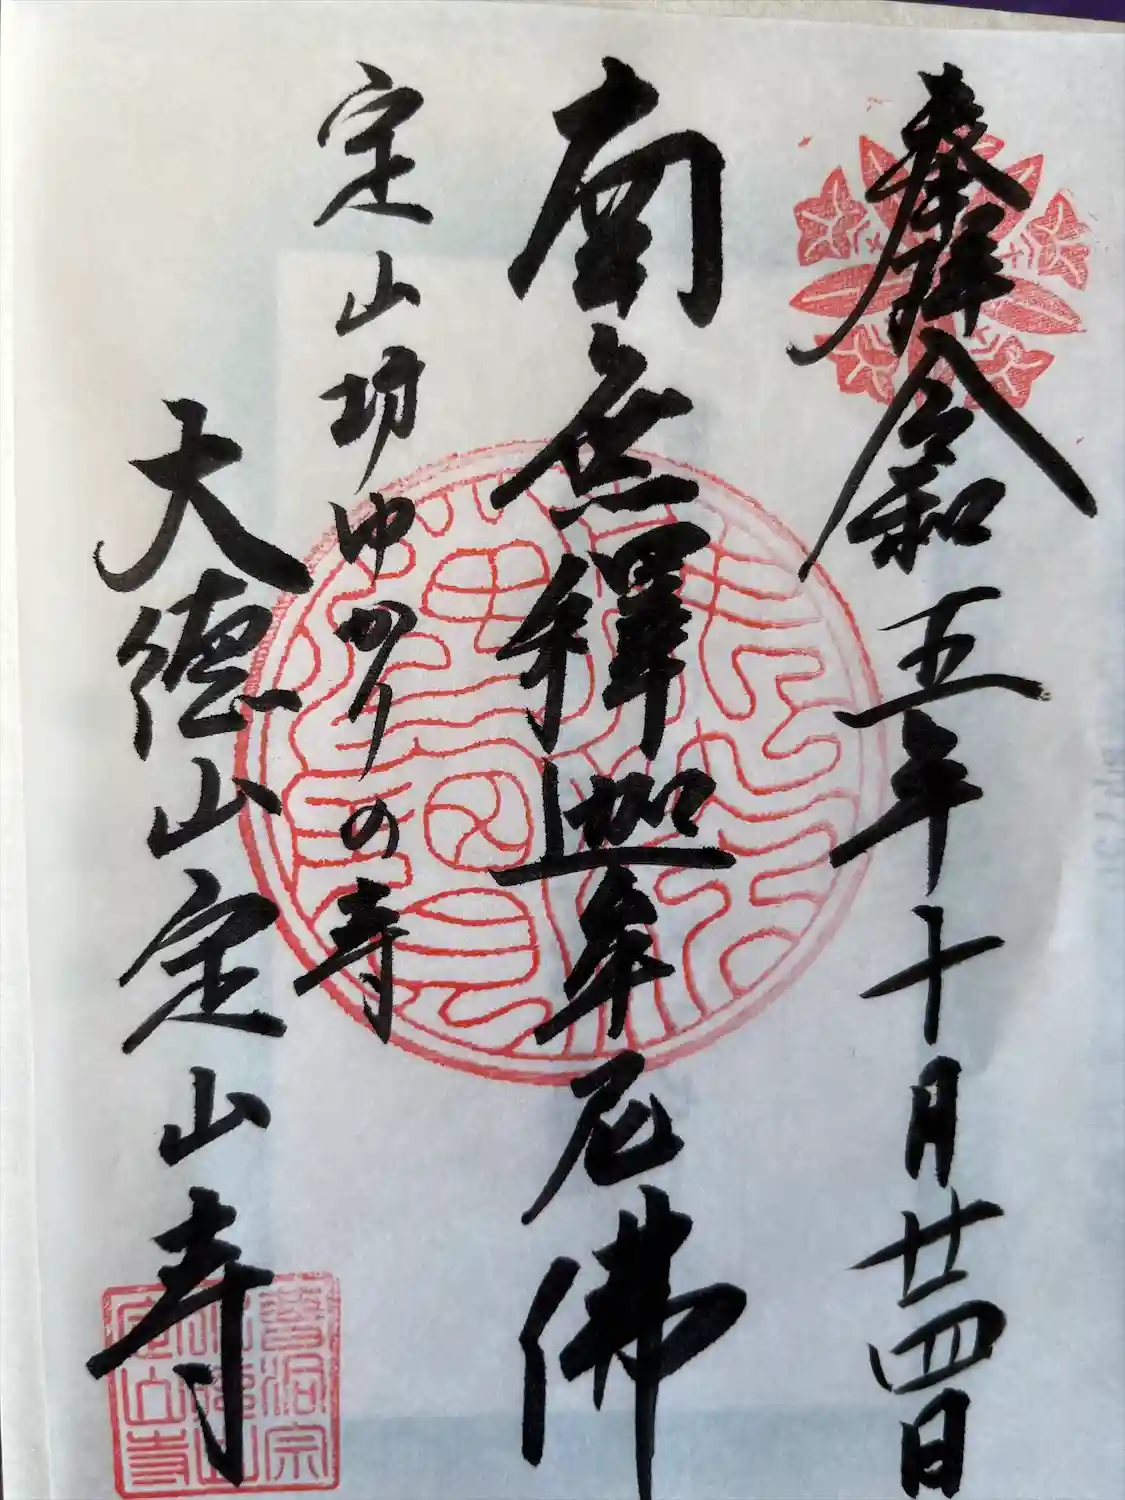 奉拜令和五年十月廿四日
南無釋迦牟尼佛
定山坊ゆかりの寺
大德山定山寺
曹洞宗
大德山
定山寺